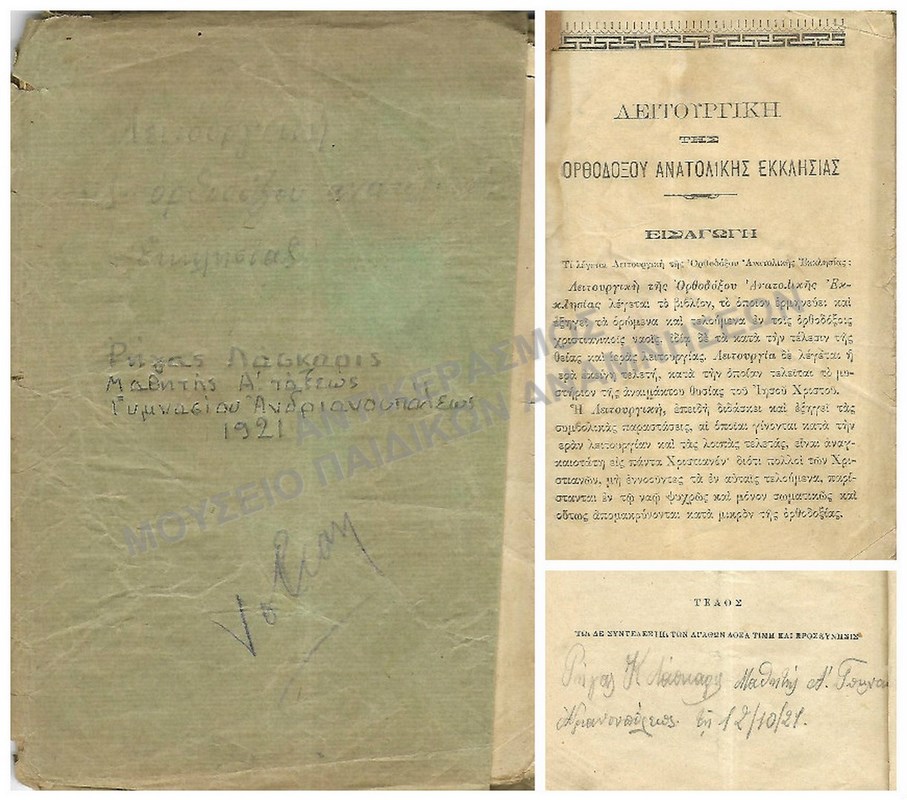 Λειτουργική
Ρήγας Λάσκαρις
Μαθητής Α΄ τάξεως
Γυμνασίου Ἀνδριανουπόλεως
1921
ΑΝΤΙΚΕΡΑΣΜΟΣ
ΜΟΥΣΕΙΟ ΠΑΙΔΙΚΩΝ ΑΝΑΜΝΗΣΕΩΝ
ΛΕΙΤΟΥΡΓΙΚΗ
ΤΗΣ
ΟΡΘΟΔΟΞΟΥ ΑΝΑΤΟΛΙΚΗΣ ΕΚΚΛΗΣΙΑΣ
ΕΙΣΑΓΩΓΗ
Τί λέγεται Λειτουργικὴ τῆς Ὀρθοδόξου Ἀνατολικῆς Ἐκκλησίας;
Λειτουργικὴ τῆς Ὀρθοδόξου Ἀνατολικῆς Ἐκ-
κλησίας λέγεται τὸ βιβλίον, τὸ ὁποῖον ἑρμηνεύει καὶ
ἐξηγεῖ τὰ ὁρώμενα καὶ τελούμενα ἐν τοῖς ὀρθοδόξοις
χριστιανικοῖς ναοῖς, ἰδίᾳ δὲ τὰ κατὰ τὴν τέλεσιν τῆς
θείας καὶ ἱερᾶς λειτουργίας. Λειτουργία δὲ λέγεται ἡ
ἱερὰ ἐκείνη τελετή, κατὰ τὴν ὁποίαν τελεῖται τὸ μυ-
στήριον τῆς ἀναιμάκτου θυσίας τοῦ Ἰησοῦ Χριστοῦ.
Ἡ Λειτουργική, ἐπειδὴ διδάσκει καὶ ἐξηγεῖ τὰς
συμβολικὰς παραστάσεις, αἱ ὁποῖαι γίνονται κατὰ τὴν
ἱερὰν λειτουργίαν καὶ τὰς λοιπὰς τελετάς, εἶναι ἀναγ-
καιοτάτη εἰς πάντα Χριστιανόν· διότι πολλοὶ τῶν Χρι-
στιανῶν, μὴ ἐννοοῦντες τὰ ἐν αὐταῖς τελούμενα, παρί-
στανται ἐν τῷ ναῷ ψυχρῶς καὶ μόνον σωματικῶς καὶ
οὕτως ἀπομακρύνονται κατὰ μικρὸν τῆς ὀρθοδοξίας.
ΤΕΛΟΣ
ΤΩ ΔΕ ΣΥΝΤΕΛΕΣΤΗ ΤΩΝ ΑΓΑΘΩΝ ΔΟΞΑ ΤΙΜΗ ΚΑΙ ΠΡΟΣΚΥΝΗΣΙΣ
Ρήγας Κ Λάσκαρις Μαθητής Α΄
τῇ 12/10/21.